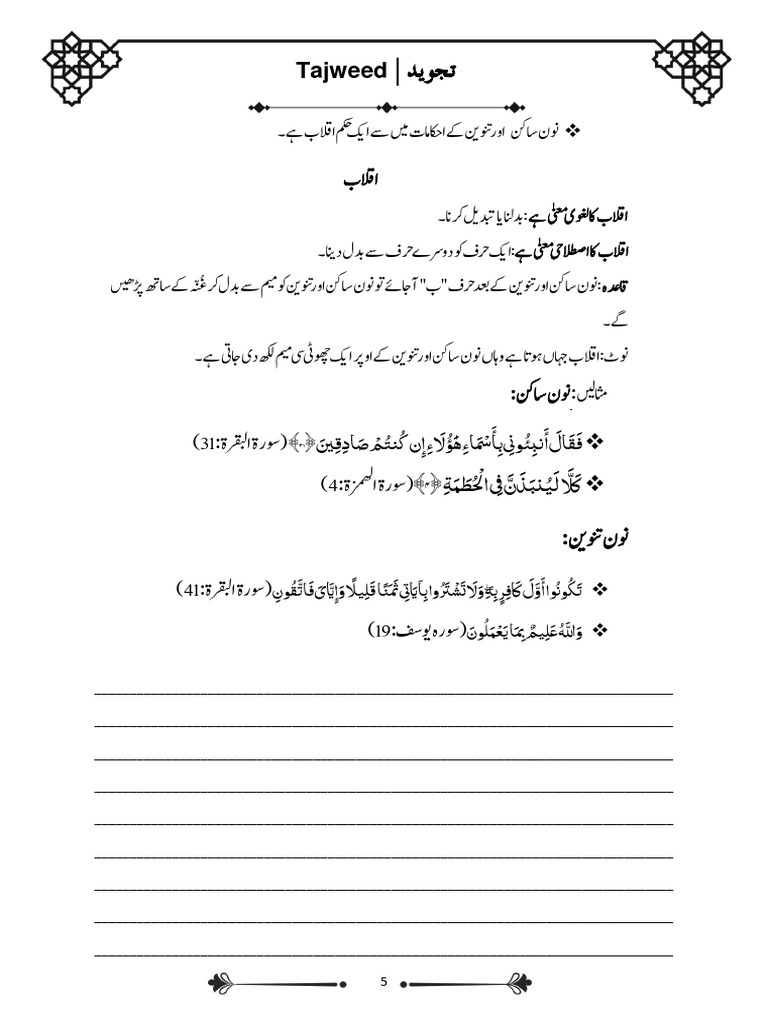 Tajweed | تجوید
❖ نون ساکن اور تنوین کے احکامات میں سے ایک حکم اقلاب ہے۔
اقلاب
اقلاب کا لغوی معنٰی ہے: بدلنا یا تبدیل کرنا۔
اقلاب کا اصطلاحی معنٰی ہے: ایک حرف کو دوسرے حرف سے بدل دینا۔
قاعدہ: نون ساکن اور تنوین کے بعد حرف "ب" آجائے تو نون ساکن اور تنوین کو میم سے بدل کر غُنّہ کے ساتھ پڑھیں
گے۔
نوٹ: اقلاب جہاں ہوتا ہے وہاں نون ساکن اور تنوین کے اوپر ایک چھوٹی سی میم لکھ دی جاتی ہے۔
مثالیں: نون ساکن:
❖ فَقَالَ أَنبِئُونِي بِأَسْمَاءِ هَؤُلَاءِ إِن كُنتُمْ صَادِقِينَ (سورۃ البقرۃ:31)
❖ كَلَّا لَيُنبَذَنَّ فِي الْحُطَمَةِ ﴿۴﴾ (سورۃ الھمزۃ:4)
نون تنوین:
❖ تَكُونُوا أَوَّلَ كَافِرٍ بِهِ ۖ وَلَا تَشْتَرُوا بِآيَاتِي ثَمَنًا قَلِيلًا وَإِيَّايَ فَاتَّقُونِ (سورۃ البقرۃ:41)
❖ وَاللَّهُ عَلِيمٌ بِمَا يَعْمَلُونَ (سورہ یوسف:19)
5